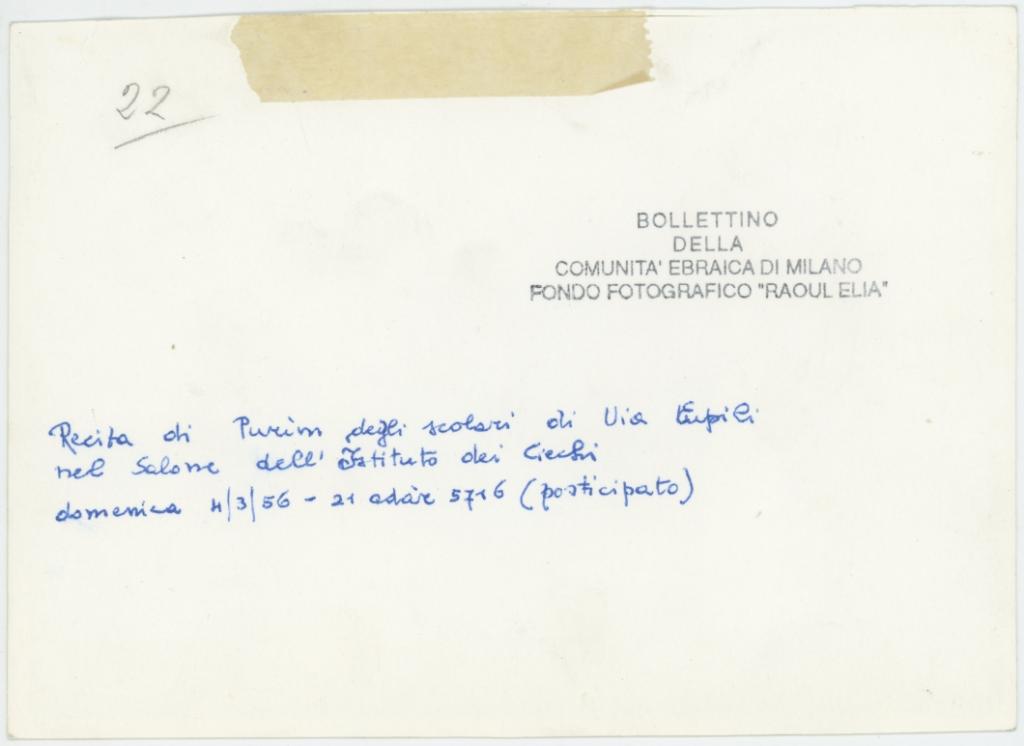 22
BOLLETTINO
DELLA
COMUNITA' EBRAICA DI MILANO
FONDO FOTOGRAFICO "RAOUL ELIA"
Recita di Purim degli scolari di Via Eupili
nel Salone dell' Istituto dei Ciechi
domenica 4/3/56 - 21 adàr 5716 (posticipato)